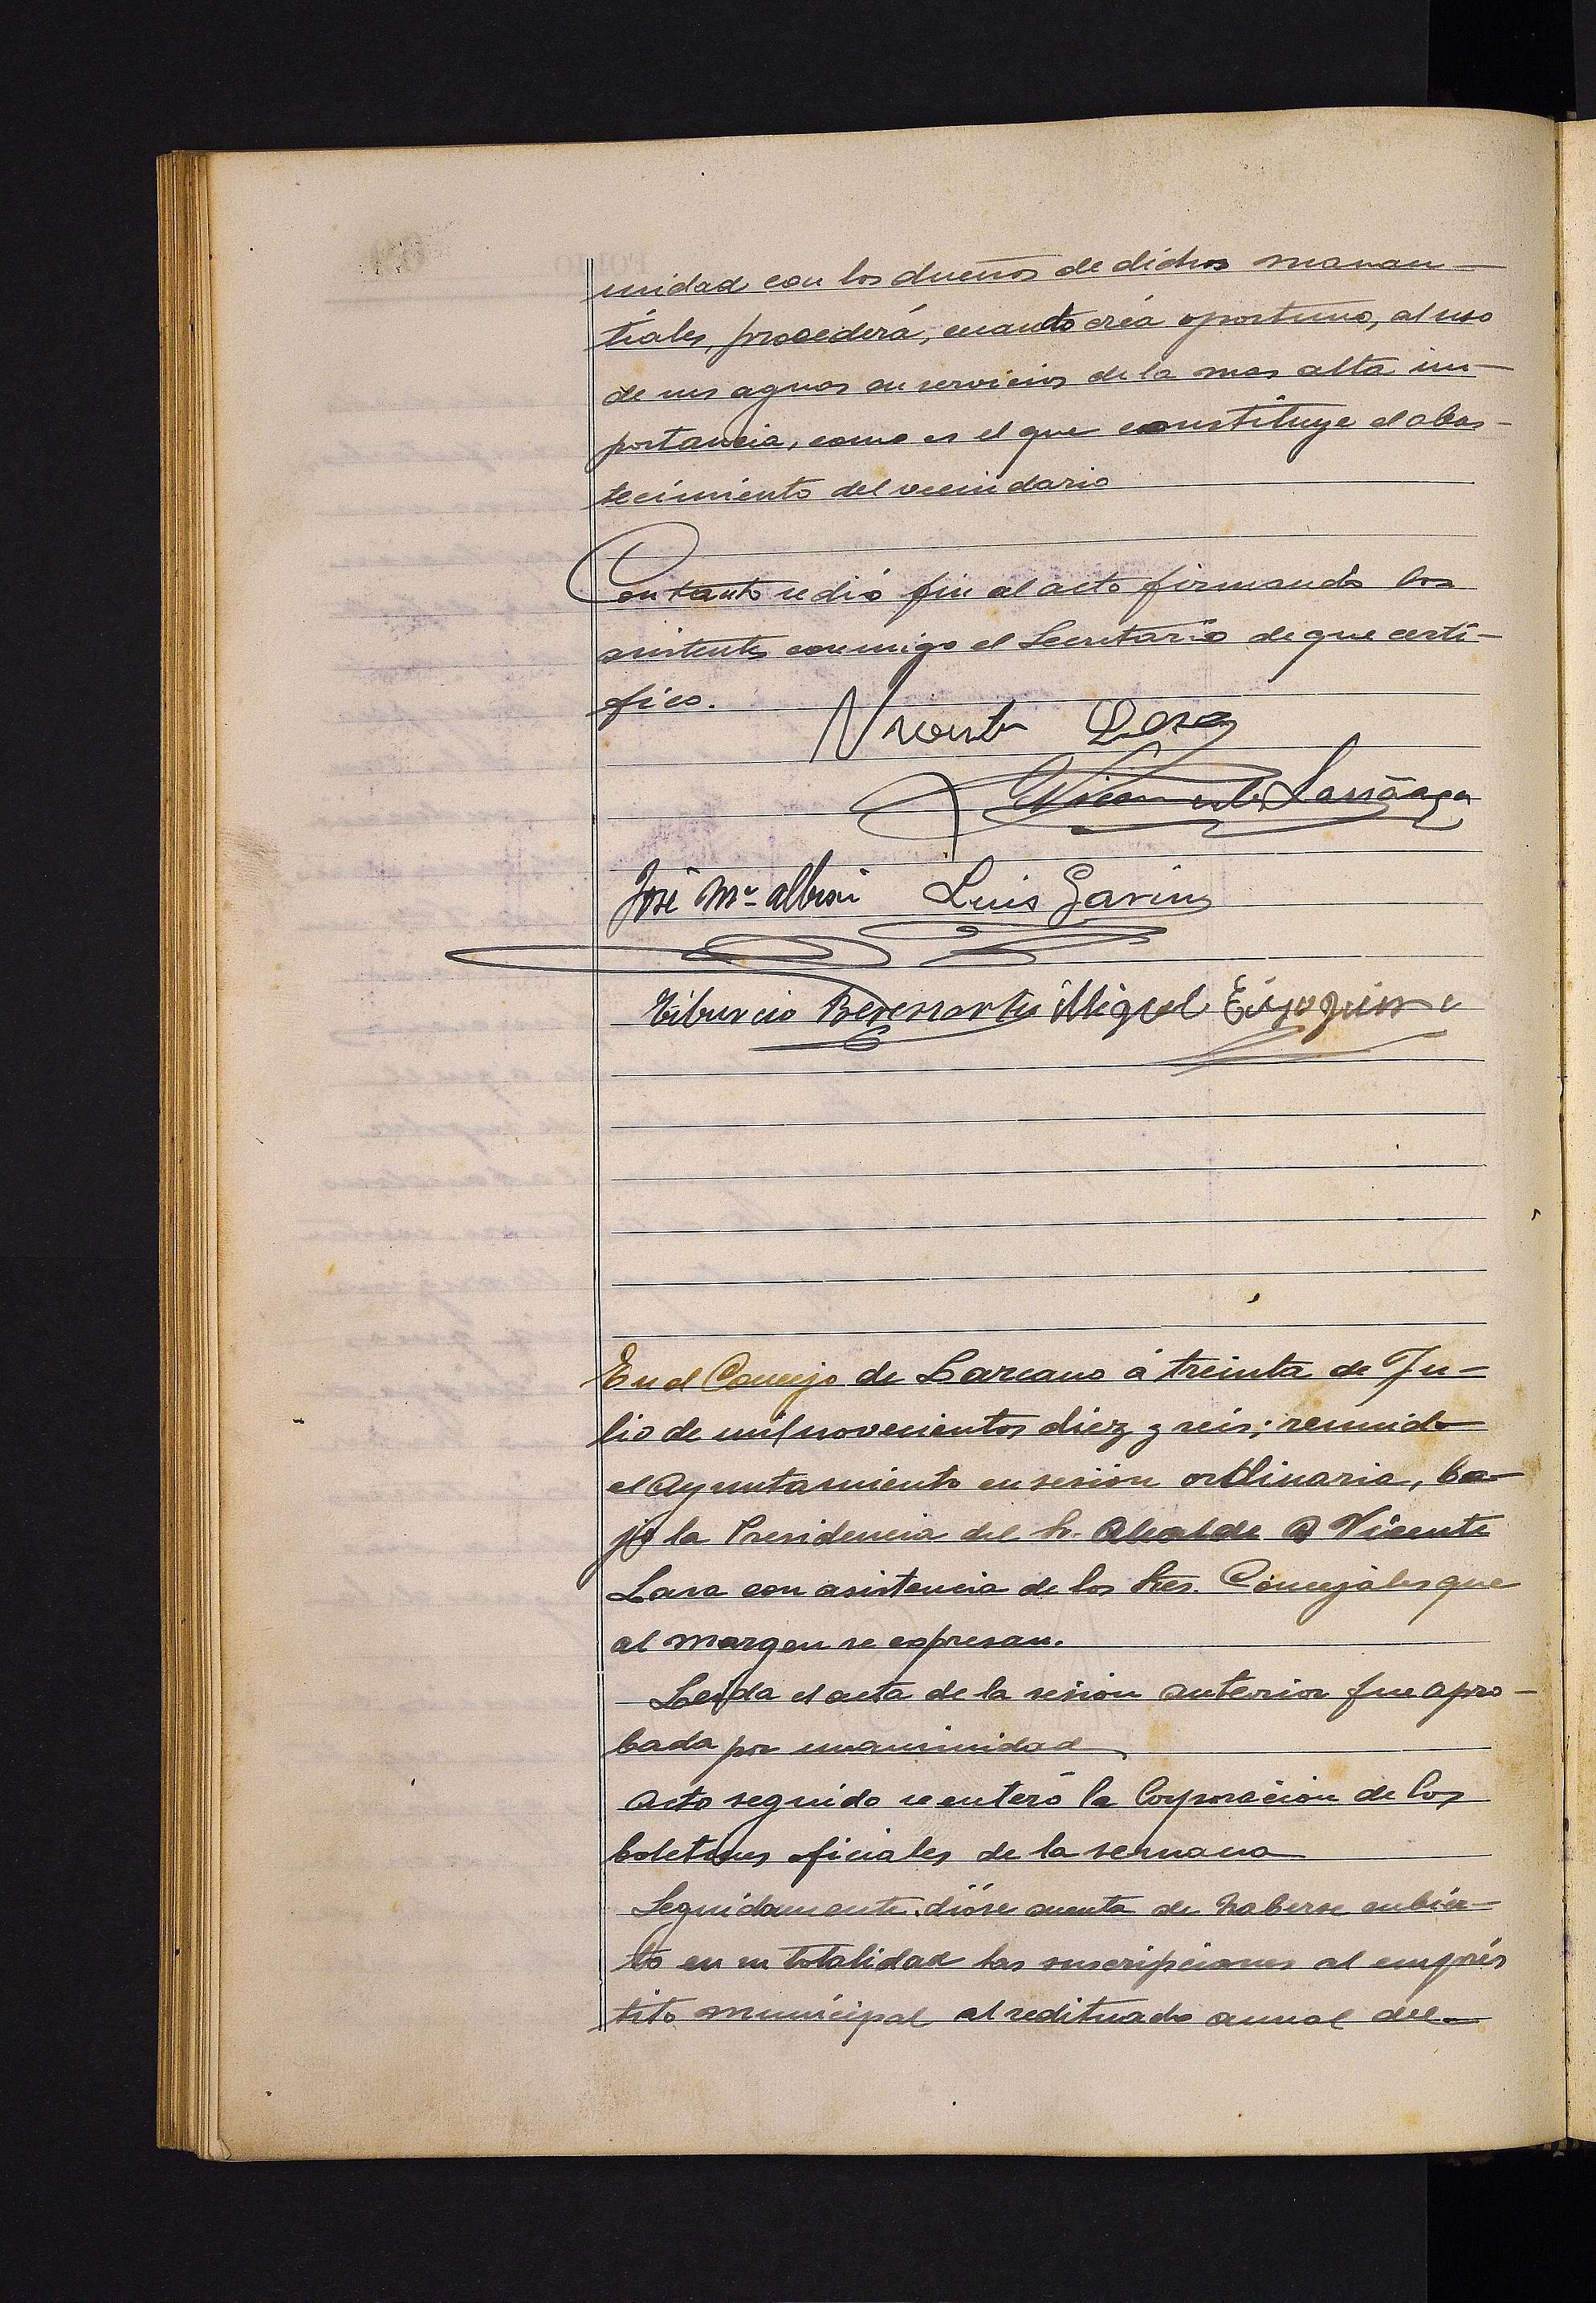 nidad con los dueños de dichos manan-
tiales, procederá, cuando créa oportuno, al uso
de sus aguas en servicios de la mas alta im-
portancia, como es el que constituye el abas-
tecimiento del vecindario
Con tanto se dió fin al acto firmando los
asistentes conmigo el Secretario de que certi-
fico.
Vicente Lasa
Vicente Larrañaga
José Mª Albisu Luis Garin
Tiburcio Berenartu Miguel
En el Concejo de Lazcano á treinta de Ju-
lio de mil novecientos diez y seis; reunido
el Ayuntamiento en sesión ordinaria, ba-
jo la Presidencia del Sr. Alcalde D Vicente
Lasa con asistencia de los Sres. Concejales que
al margen se expresan.
Leida el acta de la sesión anterior fue apro-
bada por unanimidad
Acto seguido se enteró la Corporación de los
boletines oficiales de la semana
Seguidamente dióse cuenta de haberse cubier-
to en su totalidad las suscripciones al emprés
tito municipal al redituado anual del